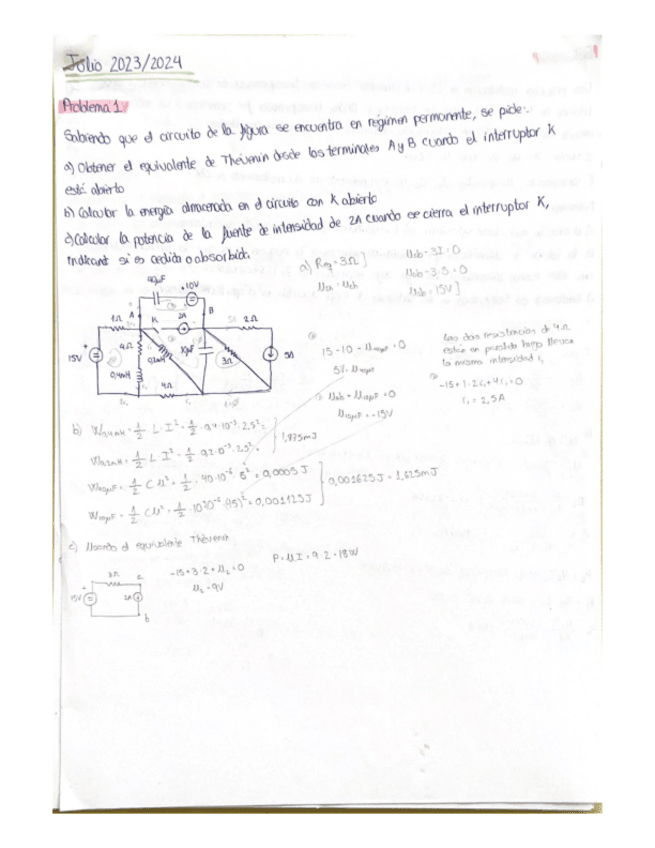 Julio 2023/2024
Problema 1:
Sabiendo que el circuito de la figura se encuentra en régimen permanente, se pide:
a) Obtener el equivalente de Thévenin desde los terminales A y B cuando el interruptor K
está abierto
b) Calcular la energía almacenada en el circuito con K abierto
c) Calcular la potencia de la fuente de intensidad de 2A cuando se cierra el interruptor K,
indicant si es cedida o absorbida.
a) Req = 3Ω
Uab - 3I = 0
Uab - 3·5 = 0
Uab = 15V
40μF
10V
A
B
1Ω
K
2A
2Ω
15V
4Ω
0,2mH
10μF
3Ω
5A
0,4mH
4Ω
15 - 10 - U40μF = 0
5V = U40μF
Uab + U10μF = 0
U10μF = -15V
Las dos resistencias de 4Ω
están en paralelo luego lleva
la misma intensidad i₁
-15 + 1·2i₁ + 4i₁ = 0
i₁ = 2,5A
b) W0,4mH = 1/2 L·I² = 1/2 · 0,4·10⁻³ · 2,5² =
W0,2mH = 1/2 L·I² = 1/2 · 0,2·10⁻³ · 2,5² =
1,875mJ
W40μF = 1/2 C U² = 1/2 · 40·10⁻⁶ · 5² = 0,0005J
W10μF = 1/2 C U² = 1/2 · 10·10⁻⁶ · (15)² = 0,001125J
0,001625J = 1,625mJ
c) Usando el equivalente Thévenin
3Ω
15V
2A
b
-15 + 3·2 + U₂ = 0
U₂ = 9V
P = U·I = 9·2 = 18W